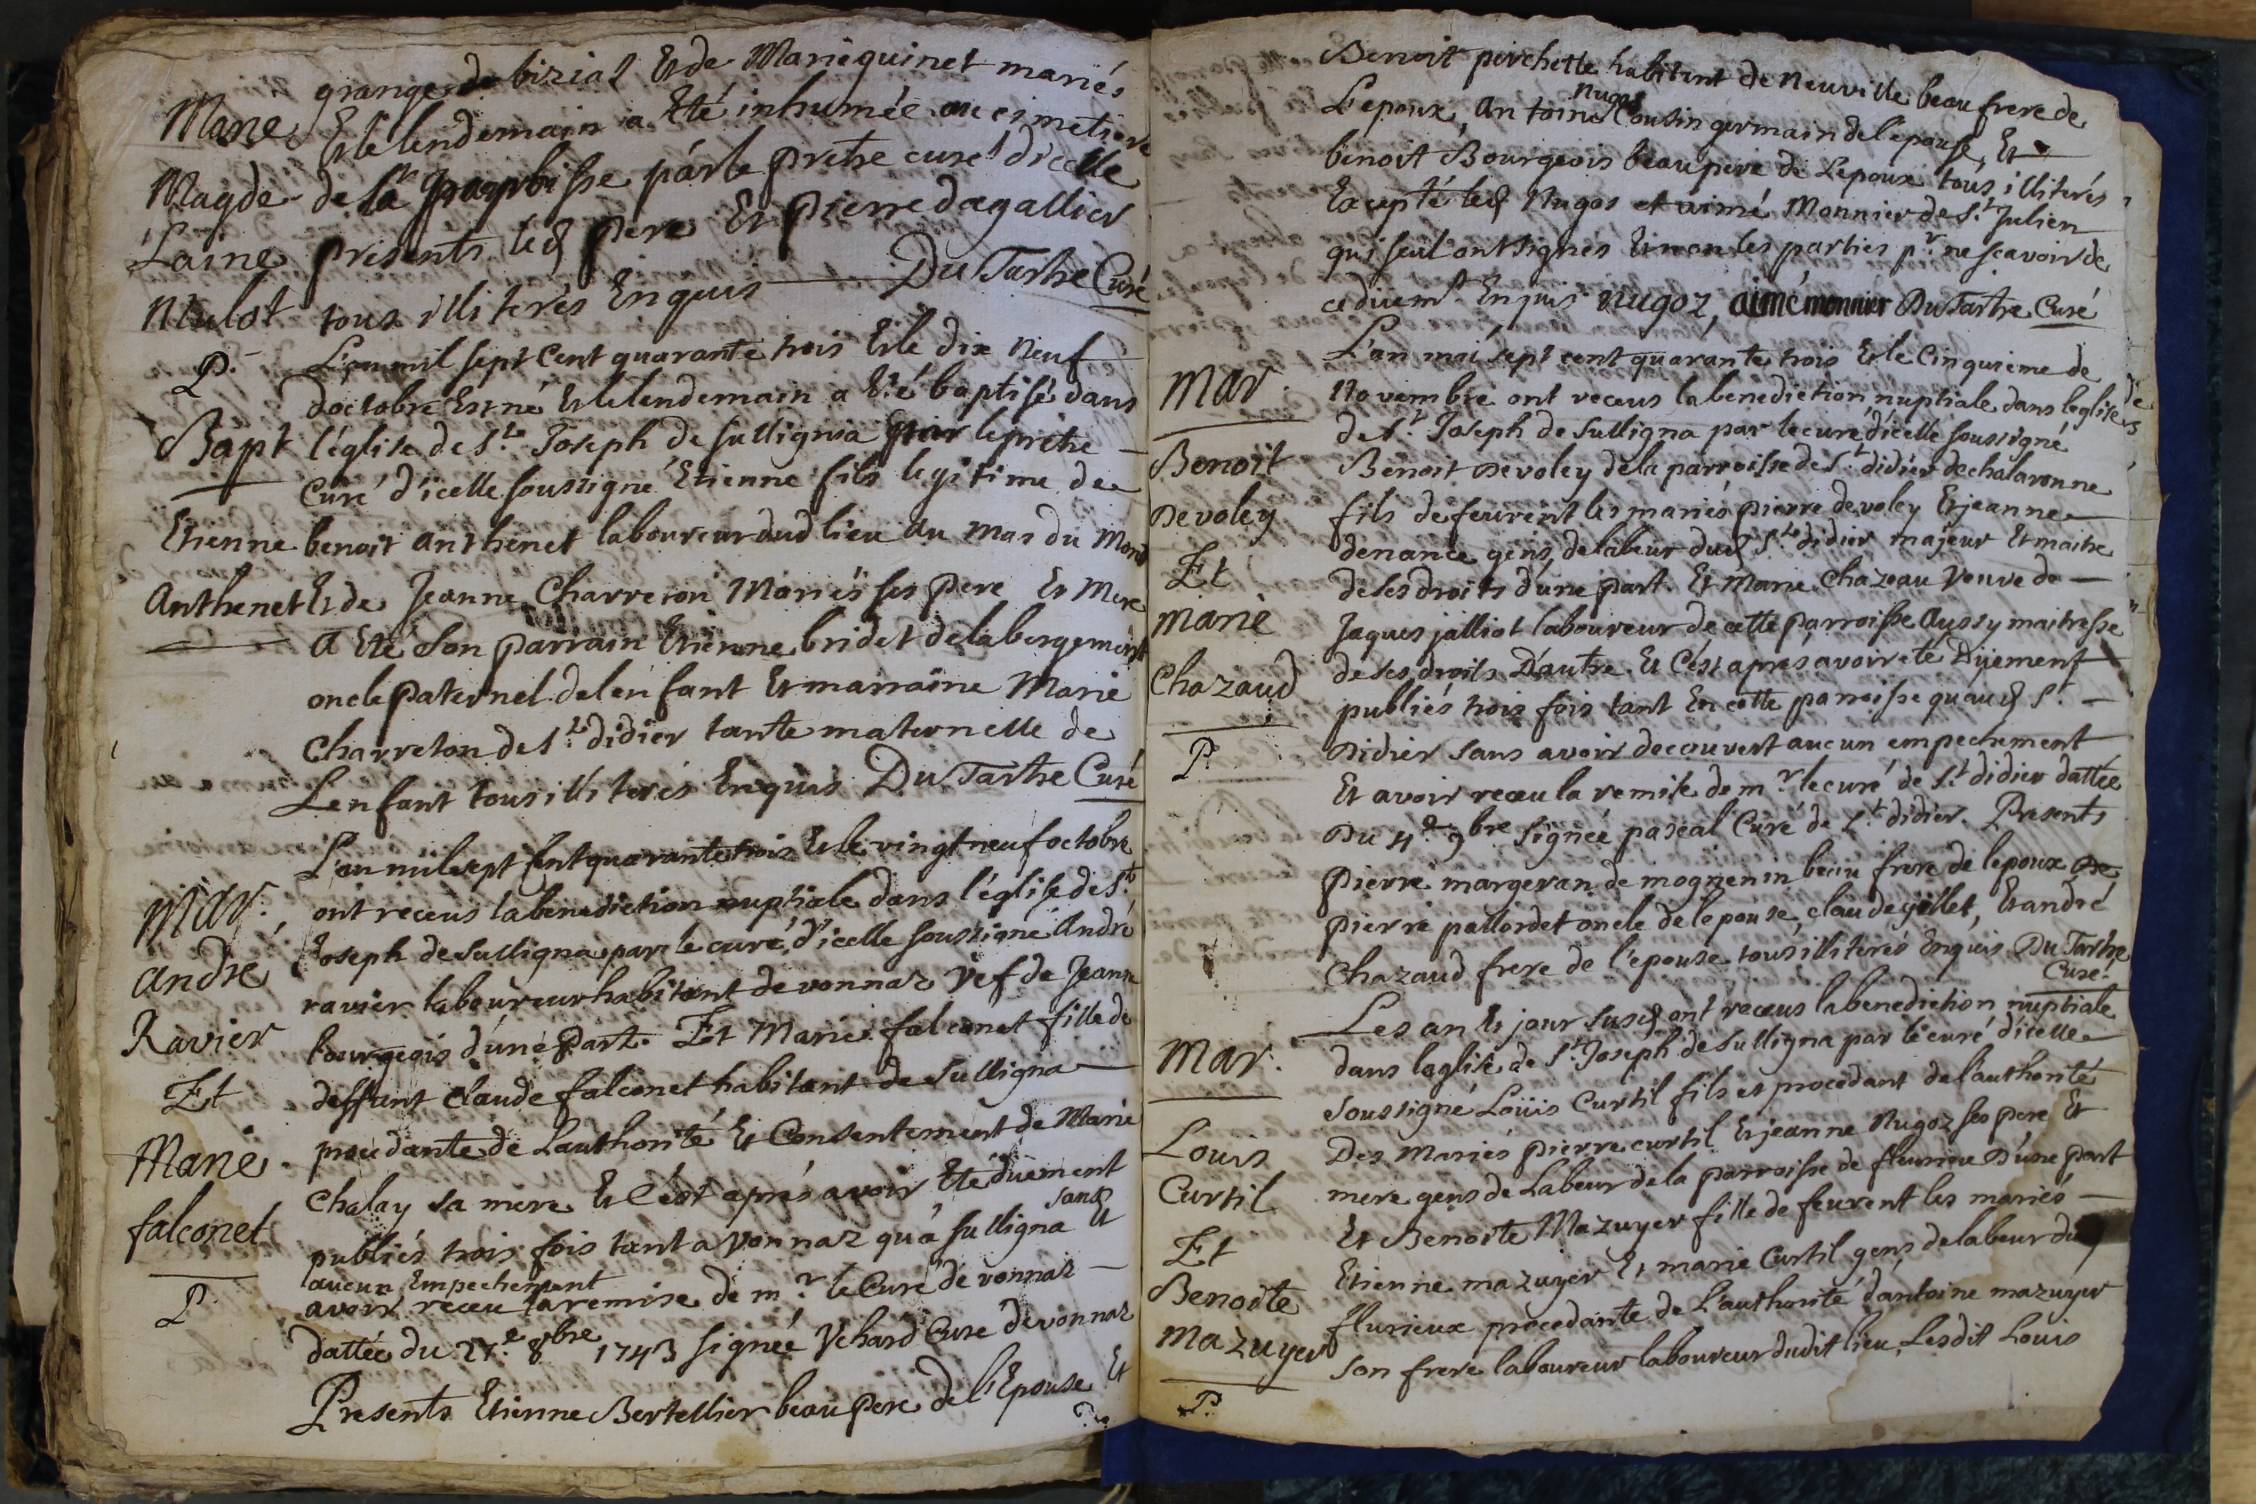 grange de bizial Et de Marie quinet mariés
Marie Et le lendemain a Eté inhumée au cimetiere
Magde- de la parroisse par le prêtre curé d'icelle
Laine presents led pere Et pierre dagallier
Mulot tous illiterés Enquis Du Tartre Curé
P.
L'an mil sept Cent quarante trois Et le dix neuf
d'octobre Est né Et le lendemain a Eté baptisé dans
Bapt l'église de St. Joseph de sullignia par le prêtre
Curé d'icelle soussigné Etienne fils legitime de
Etienne benoit anthenet laboureur dud lieu au mas du
Anthenet Et de Jeanne Charreton Mariés ses pere Et Mere
a Eté son parrain Etienne bridet de labergement
oncle paternel de lenfant Et marraine Marie
Charreton de St. didier tante maternelle de
Lenfant tous illiterés Enquis Du Tartre Curé
L'an mil sept Cent quarante trois Et le vingt neuf octobre
Mar. ont receus la benediction nuptiale dans l'église de St.
Joseph de Sulligna par le curé d'icelle soussigné André
andre
ravier laboureur habitant de vonnaz Vef de Jeanne
Ravier
bourgeois d'une part. Et Marie falconet fille de
Et
deffunt Claude falconet habitant de Sulligna
Marie
procedante de Lauthorité Et Consentement de Marie
falconet
Chalay sa mere Et C'est aprés avoir Eté düement
publiés trois fois tant a Vonnaz qu'a sulligna sans Et
aucun Empechement
P.
avoir receu la remise de mr. le Curé de vonnaz
dattée du 27e. 8bre 1743 signée Vchard Cure de vonnaz
Presents Etienne Bertellier beau pere de l'Epouse Et
Benoit perchette habitant de Neuville beau frere de
nugoz
L'epoux, antoine Cousin germain de l'epouse, Et
benoit Bourgeois beau pere de Lepoux tous illiterés
Excepté led Nugos et aimé Monnier de St Julien
qui seul ont signés Et non les parties pr. ne scavoir de
ce düemt Enquis nugoz, aimé monnier Du Tartre Curé
L'an mil sept cent quarante trois Et le Cinquieme de
Mar. Novembre ont receus la benediction nuptiale dans leglise
de St. Joseph de Sulligna par le curé d'icelle soussigné
Benoit Benoit Devoley de la parroisse de St didier de chalaronne
Devoley fils de feurent les mariés pierre devoley Et jeanne
Et denance gens de labeur dud St didier majeur Et maitre
de ses droits d'une part. Et Marie Chazeau Veuve de
marie Jaques jalliot laboureur de cette parroisse Aussy maitresse
Chazaud de ses droits D'autre. Et C'est aprés avoir eté Düement
publiés trois fois tant En cette parroisse quaud St.
P. Didier sans avoir decouvert aucun empechement
Et avoir receu la remise de mr. le curé de St didier dattée
Du 4e 9bre signée pascal Curé de St. didier. Presents
pierre margeran de mognenin beau frere de lepoux
pierre pallordet oncle de lepouse, claude gillet, Et andré
Chazaud frere de l'epouse tous illiterés Enquis Du Tartre
Curé.
Les an Et jour susd ont receus la benediction nuptiale
Mar. dans leglise de St. Joseph de Sulligna par le curé d'icelle
soussigné Loüis Curtil fils et procedant de lauthorité
Louis Des Mariés pierre curtil Et jeanne Nugoz ses pere Et
Curtil mere gens de Labeur de la parroisse de fleurieux D'une part
Et Et Benoite Mazuyer fille de feurent les mariés
Benoite Etienne mazuyer Et marie Curtil gens de labeur dud
Mazuyer flurieux procedante de L'authorité d'antoine mazuyer
son frere laboureur laboureur dudit lieu, Lesdit Louis
P.